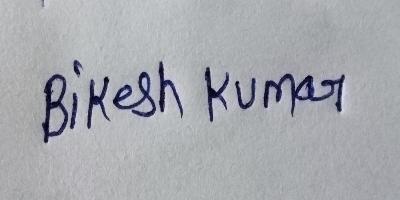 Bikesh Kumar